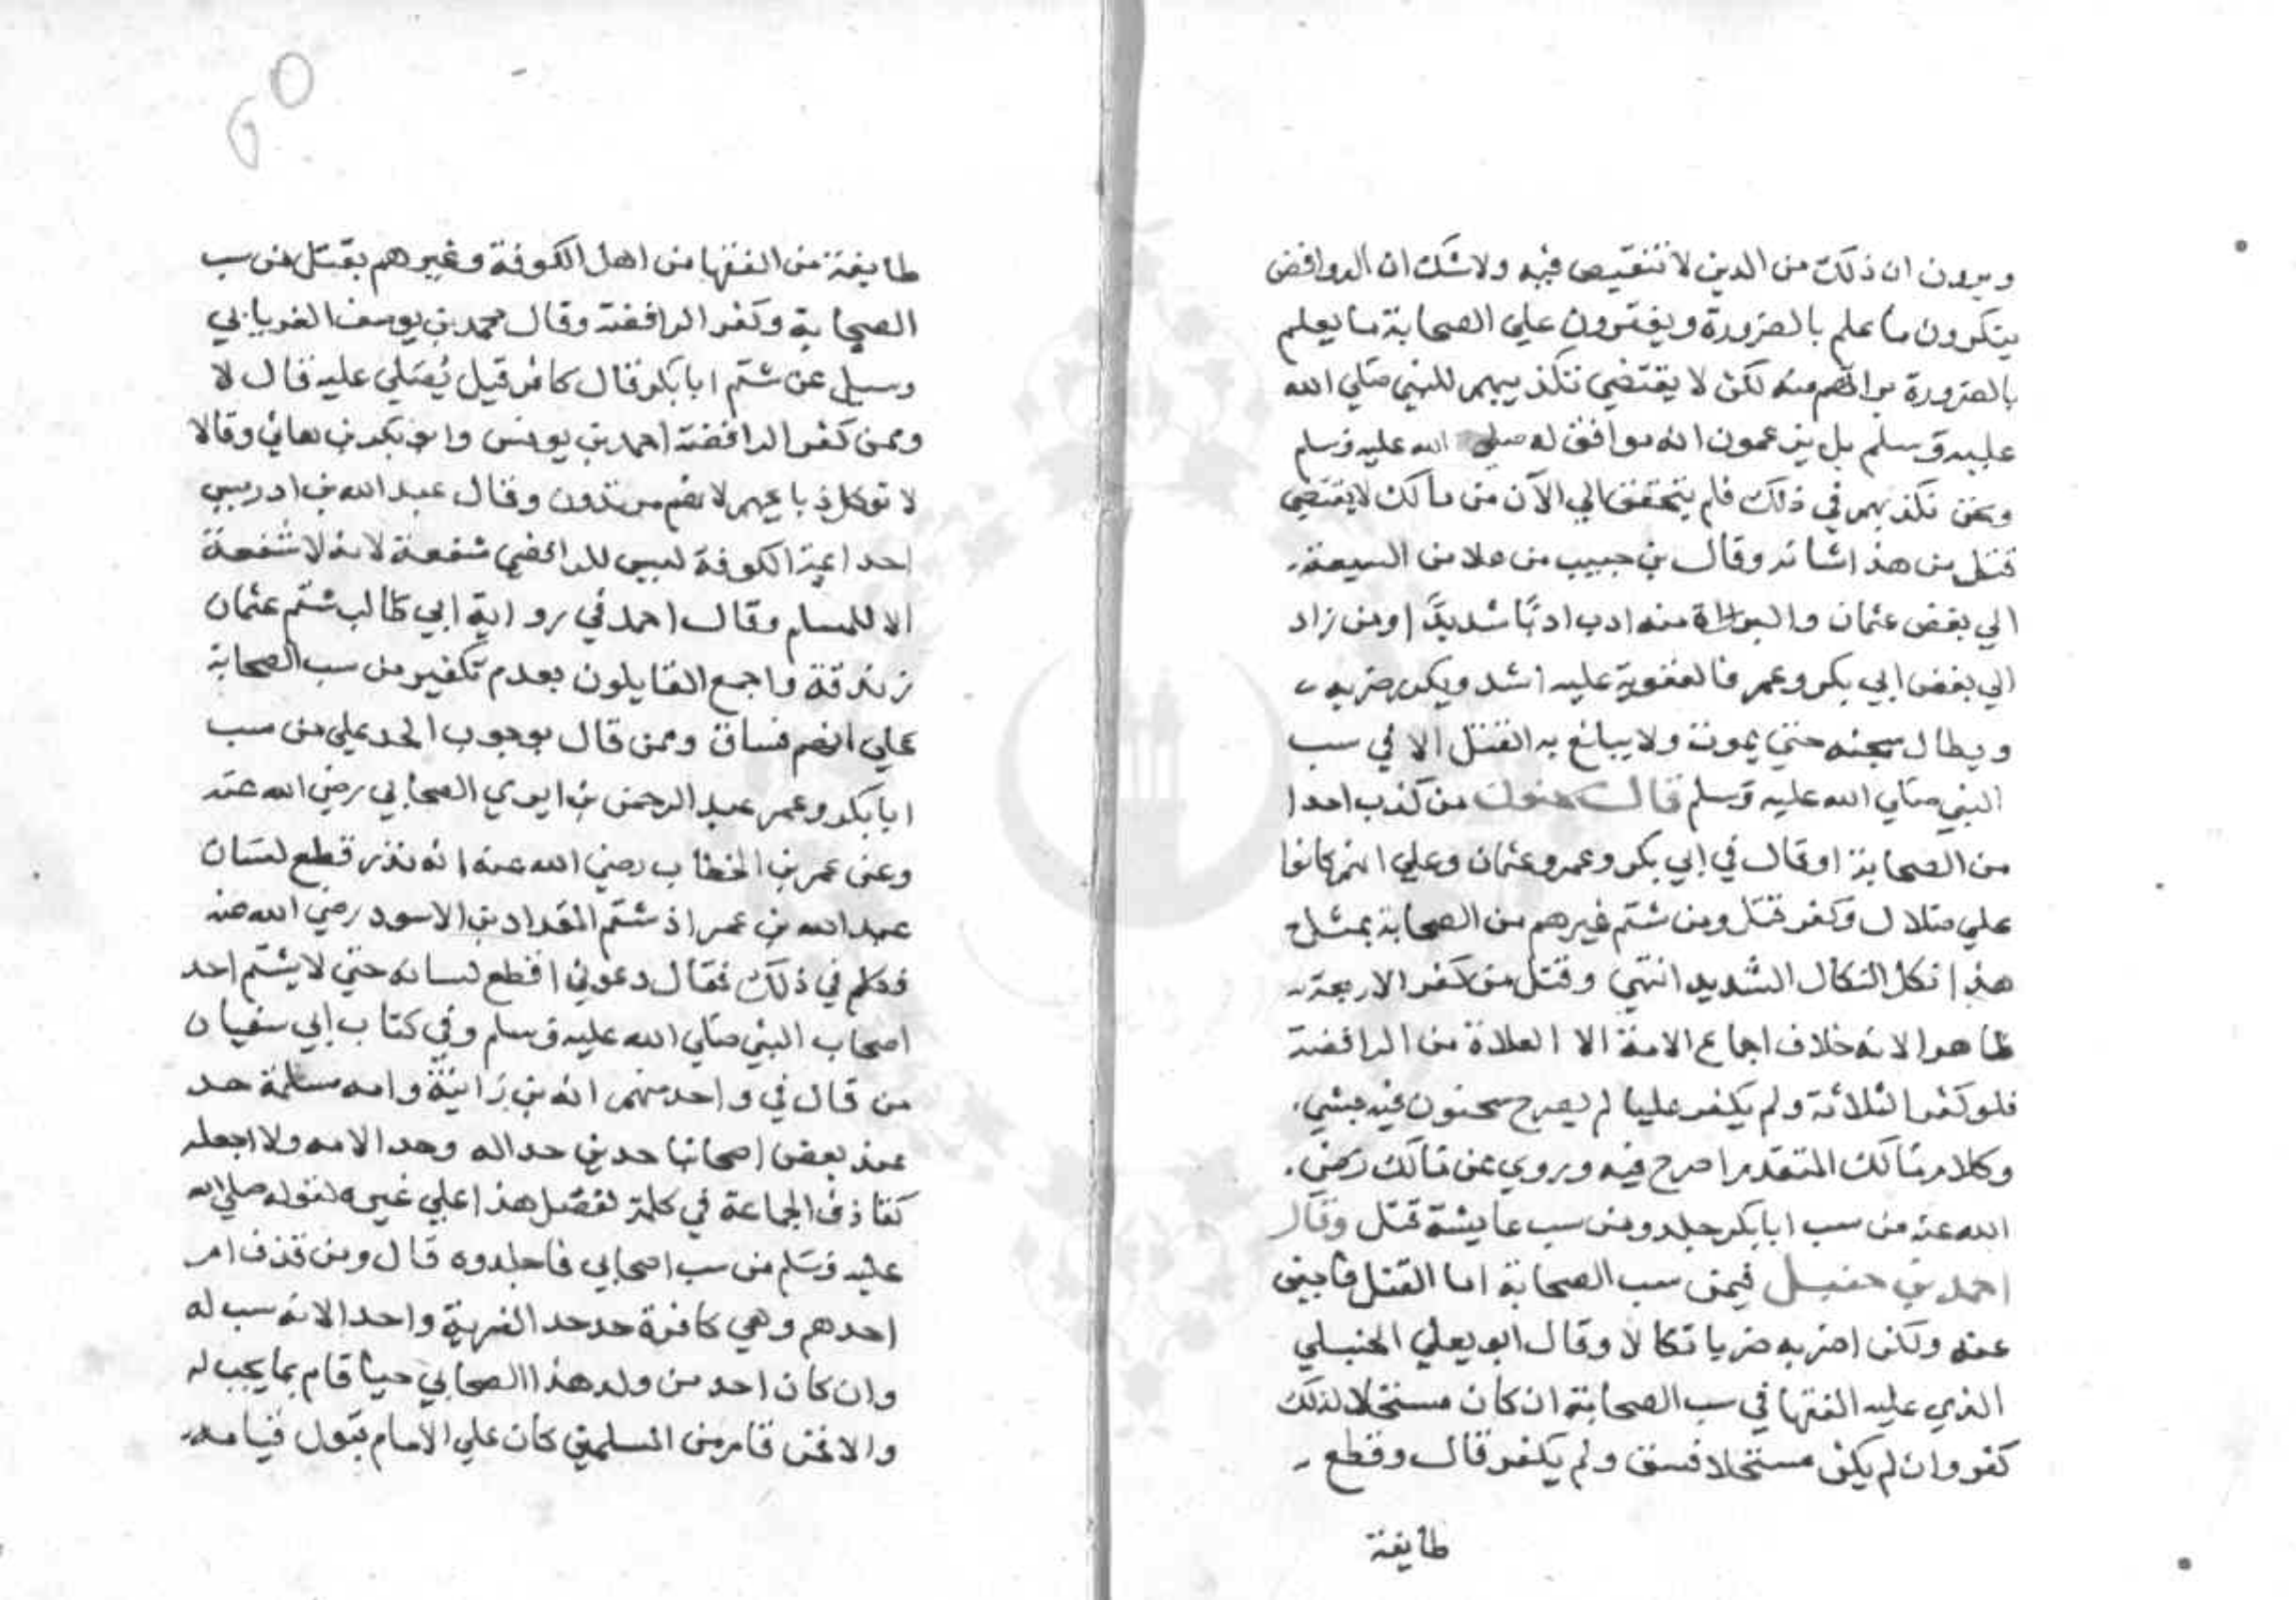 ويرون ان ذلك من الدين لا تنقيص فيه ولا شك ان الروافض
ينكرون ما علم بالضرورة ويفترون علي الصحابة ما يعلم
بالضرورة براتهم منه لكن لا يقتضي تكذيبهم للنبي صلي الله
عليه وسلم بل يزعمون انه موافق له صلي الله عليه وسلم
ونحن نكذبهم في ذلك فلم يتحقق الي الآن من مالك لا يقتضي
قتل من هذا شانه وقال بن حبيب من غلا من الشيعة
الي بغض عثمان والبراة منه ادب ادبًا شديدًا ومن زاد
الي بغض ابي بكر وعمر فالعقوبة عليه اشد ويكرر ضربه
ويطال سجنه حتي يموت ولا يبلغ به القتل الا في سب
النبي صلي الله عليه وسلم قال سحنون من كذب احدا
من الصحابة او قال في ابي بكر وعمر وعثمان وعلي انهم كانوا
علي ضلال وكفر قتل ومن شتم غيرهم من الصحابة بمثل
هذا نكل النكال الشديد انتهي وقتل من كفر الاربعة
ظاهر الانه خلاف اجماع الامة الا الغلاة من الرافضة
فلو كفر الثلاثة ولم يكفر عليا لم يصرح سحنون فيه بشي
وكلام مالك المتقدم اصرح فيه وروي عن مالك رضي
الله عنه من سب ابا بكر جلد ومن سب عايشة قتل وقال
احمد بن حنبل فيمن سب الصحابة اما القتل فاجبن
عنه ولكن اضربه ضربا نكالا وقال ابو يعلي الحنبلي
الذي عليه الفقها في سب الصحابة ان كان مستحلا لذلك
كفر وان لم يكن مستحلا فسق ولم يكفر قال وقطع
طايفة
60
طايفة من الفقها من اهل الكوفة وغيرهم بقتل من سب
الصحابة وكفر الرافضة وقال محمد بن يوسف الفريابي
وسيل عن شتم ابا بكر قال كافر قيل يُصَلي عليه قال لا
وممن كفر الرافضة احمد بن يونس وابو بكر بن هاني وقالا
لا توكل ذبايحهم لانهم مرتدون وقال عبد الله بن ادريس
احد ايمة الكوفة ليس للرافضي شفعة لانه لا شفعة
الا للمسلم وقال احمد في رواية ابي طالب شتم عثمان
زندقة واجمع القايلون بعدم تكفير من سب الصحابة
علي انهم فساق وممن قال بوجوب الحد علي من سب
ابا بكر وعمر عبد الرحمن بن ابزي الصحابي رضي الله عنه
وعن عمر بن الخطاب رضي الله عنه انه نذر قطع لسان
عبد الله بن عمر اذ شتم المقداد بن الاسود رضي الله عنه
فكلم في ذلك فقال دعوني اقطع لسانه حتي لا يشتم احد
اصحاب النبي صلي الله عليه وسلم وفي كتاب ابي سفيان
من قال في واحد منهم انه بن زانية وامه مسلمة حد
عند بعض اصحابنا حدين حدا له وحدا لامه ولا اجعله
كقاذف الجماعة في كلمة لفضل هذا علي غيره لقوله صلي الله
عليه وسلم من سب اصحابي فاجلدوه قال ومن قذف ام
احدهم وهي كافرة حد حد الفرية واحد الانه سب له
وان كان احد من ولد هذا الصحابي حيا قام بما يجب له
والا فمن قام من المسلمين كان علي الامام قبول قيامه